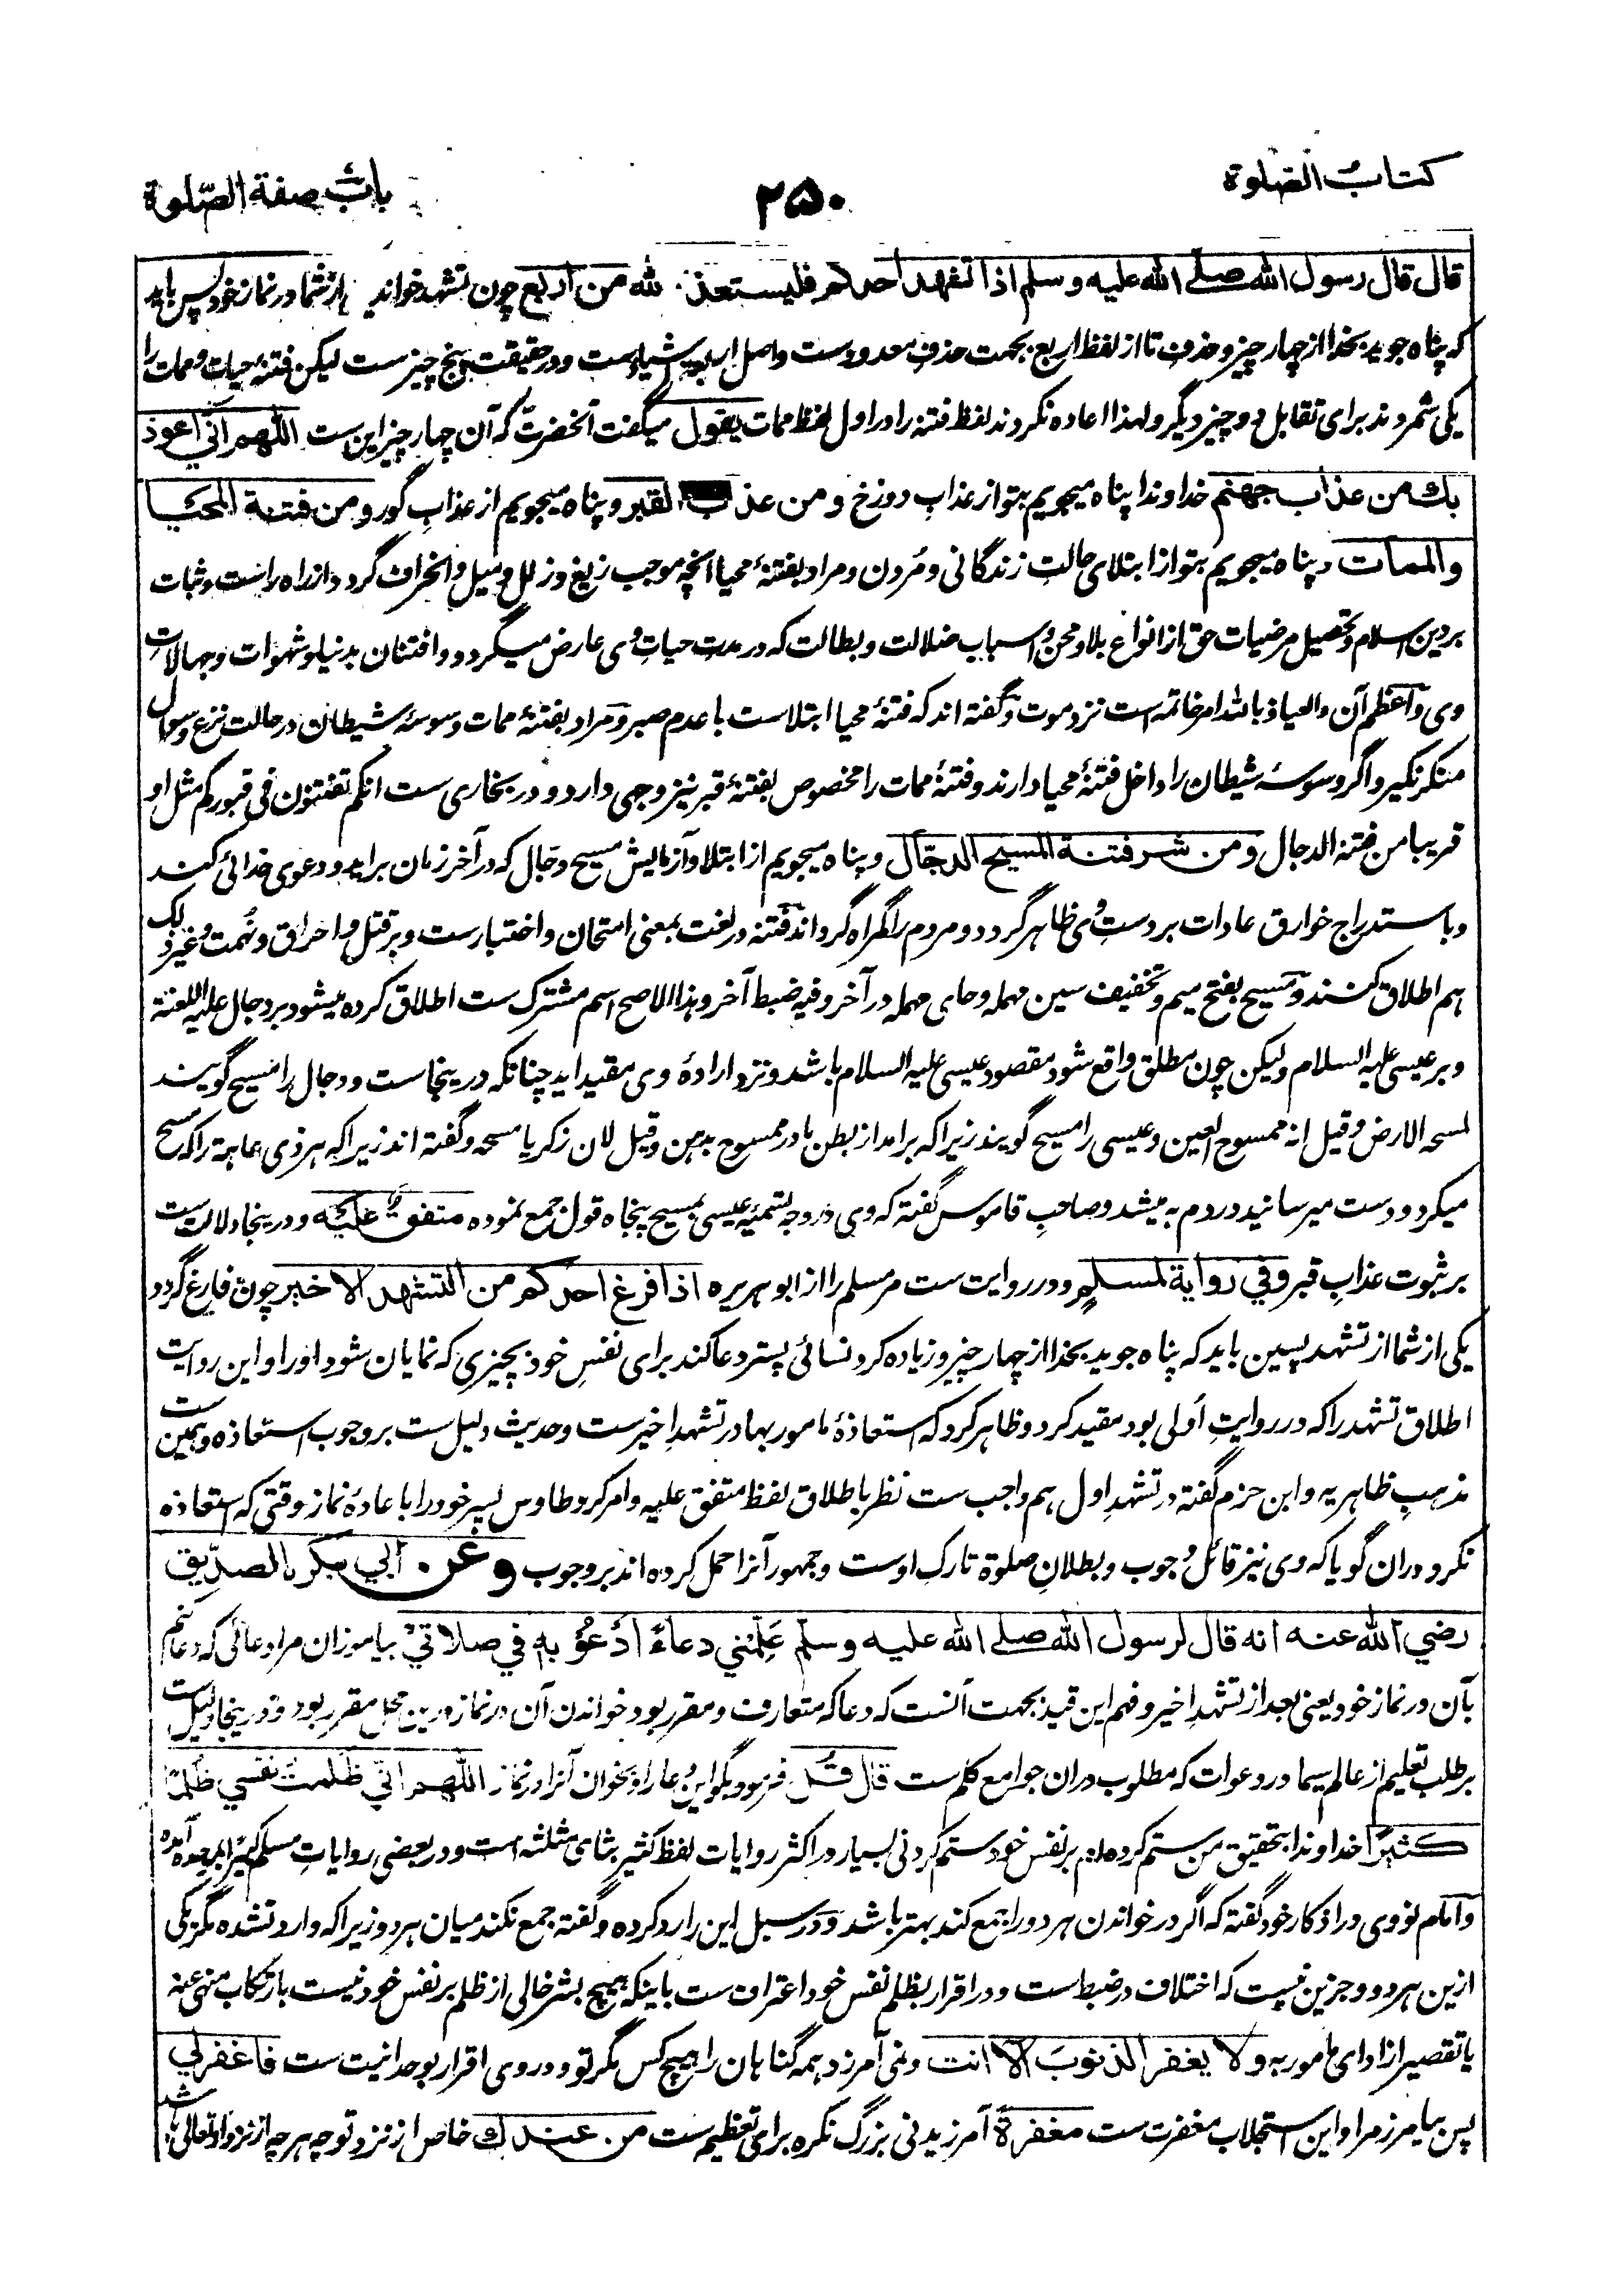 كتاب الصلوة
۲۵۰
باب صفة الصلوة
قال قال رسول الله صلے الله عليه وسلم اذا تشهد احدكم فليستعذ بالله من اربع چون تشهد خواند یکی از شما در نماز خود پس باید
که پناه جوید بخدا از چهار چیز و حذف تا از لفظ اربع بجهت حذف معدودست واصل اربعة اشیاء است ودر حقیقت پنج چیز ست لیکن فتنهٔ حیات وممات را
یکی شمردند برای تقابل دو چیز دیگر ولهذا اعاده نکردند لفظ فتنه را در اول لفظ ممات يقول میگفت آنحضرت که آن چهار چیز این ست اللهم انّي اعوذ
بك من عذاب جهنم خداوندا پناه میجویم بتو از عذاب دوزخ ومن عذاب القبر و پناه میجویم از عذاب گور ومن فتنة المحيا
والممات و پناه میجویم بتو از ابتلای حالت زندگانی ومُردن ومراد بفتنهٔ محیا آنچه موجب زیغ وزلل ومیل وانحراف گردد از راه راست وثبات
بر دین اسلام وتحصیل مرضیات حق از انواع بلا ومحن واسباب ضلالت وبطالت که در مدت حیات وی عارض میگردد وافتنان بدنیا وشهوات وجهالات
وی واعظم آن والعیاذ بالله امر خاتمه است نزد موت وگفته اند که فتنهٔ محیا ابتلاست با عدم صبر ومراد بفتنهٔ ممات وسوسهٔ شیطان در حالت نزع وسوال
منکر نکیر واگر وسوسهٔ شیطان را داخل فتنهٔ محیا دارند وفتنهٔ ممات را مخصوص بفتنهٔ قبر نیز وجهی دارد ودر بخاری ست انکم تفتنون فی قبورکم مثل او
قریبا من فتنة الدجال ومن شر فتنة المسيح الدجّال و پناه میجویم از ابتلا وآزمایش مسیح دجال که در آخر زمان براید ودعوی خدائی کند
وباستدراج خوارق عادات بر دست وی ظاهر گردد ومردم را گمراه گرداند فتنه در لغت بمعنی امتحان واختبارست وبر قتل واحراق وتهمت وغیر ذلک
هم اطلاق کنند ومسیح بفتح میم وتخفیف سین مهمله وحای مهمله در آخر وفیه ضبط آخر وهذا الاصح اسم مشترک ست اطلاق کرده میشود بر دجال علیه اللعنة
وبر عیسی علیه السلام ولیکن چون مطلق واقع شود مقصود عیسی علیه السلام باشد ونزد ارادهٔ وی مقید اید چنانکه درینجاست ودجال را مسیح گویند
لمسحه الارض وقیل انه ممسوح العین وعیسی را مسیح گویند زیرا که برامد از بطن مادر ممسوح بدهن وقیل لان زکریا مسحه وگفته اند زیرا که هر ذی عاهة را که مسح
میکرد ودست میرسانید در دم به میشد وصاحب قاموس گفته که وی در وجه تسمیهٔ عیسی بمسیح پنجاه قول جمع نموده متفق عليه ودرینجا دلالت ست
بر ثبوت عذاب قبر وفي رواية لمسلم ودر روایت ست مر مسلم را از ابو هریره اذا فرغ احدكم من التشهد الاخير چون فارغ گردد
یکی از شما از تشهد پسین باید که پناه جوید بخدا از چهار چیز وزیاده کرد نسائی پستر دعا کند برای نفس خود بچیزی که نمایان شود او را واین روایت
اطلاق تشهد را که در روایت اُولی بود مقید کرد وظاهر کرد که استعاذهٔ مامور بها در تشهد اخیرست وحدیث دلیل ست بر وجوب استعاذه وهمین ست
مذهب ظاهریه وابن حزم گفته در تشهد اول هم واجب ست نظر باطلاق لفظ متفق علیه وامر کرد طاوس پسر خود را باعادهٔ نماز وقتی که استعاذه
نکرد دران گویا که وی نیز قائل وجوب وبطلان صلوة تارک اوست وجمهور آنرا حمل کرده اند بر وجوب وعن ابي بكر الصدّيق
رضي الله عنه انه قال لرسول الله صلے الله عليه وسلم عَلِّمْني دعاءً اَدْعُوْ به في صلاتيْ بیاموزان مرا دعائی که دعا کنم
بآن در نماز خود یعنی بعد از تشهد اخیر وفهم این قید بجهت آنست که دعا که متعارف ومقرر بود خواندن آن در نماز درین محل مقرر بود ودرینجا دلیل ست
بر طلب تعلیم از عالم سیما در دعوات که مطلوب دران جوامع کلم ست قال قل فرمود بگو این دعا را وبخوان آنرا در نماز اللهم انّي ظلمت نفسي ظلمًا
كثيرًا خداوندا بتحقیق من ستم کرده ام بر نفس خود ستم کردنی بسیار در اکثر روایات لفظ کثیر بثای مثلثه است ودر بعضی روایات مسلم کبیرا بموحده آمده
وامام نووی در اذکار خود گفته که اگر در خواندن هر دو را جمع کند بهتر باشد ودر سبل این را رد کرده وگفته جمع نکند میان هر دو زیرا که وارد نشده مگر یکی
ازین هر دو وجزین نیست که اختلاف در ضبط است ودر اقرار بظلم نفس خود اعتراف ست باینکه هیچ بشر خالی از ظلم بر نفس خود نیست بارتکاب منهی عنه
یا تقصیر از ادای مامور به ولا يغفر الذنوبَ الا انت ونمی آمرزد همه گناهان را هیچ کس مگر تو ودر وی اقرار بوحدانیت ست فاغفر لي
پس بیامرز مرا واین استجلاب مغفرت ست مغفرةً آمرزیدنی بزرگ نکره برای تعظیم ست من عندك خاص از نزد تو چه هر چه از نزد او تعالی باشد